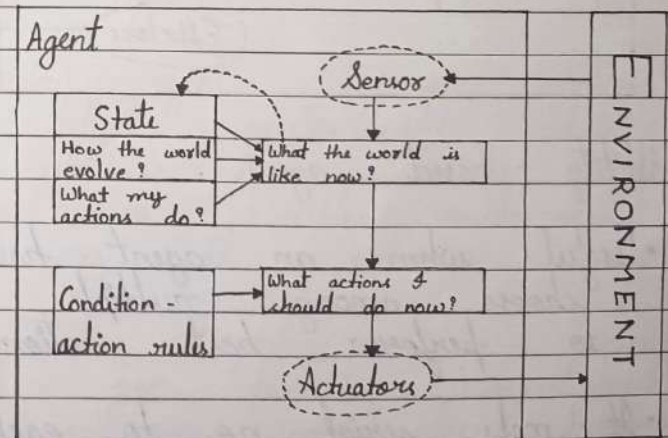 Agent
Sensor
State
How the world
evolve?
What my
actions do?
What the world is
like now?
Condition-
action rules
What actions I
should do now?
Actuators
ENVIRONMENT